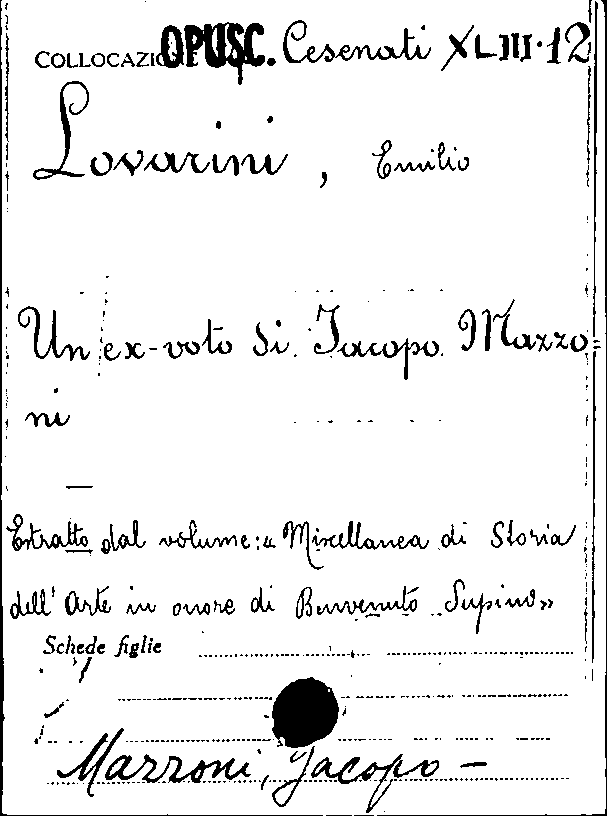 COLLOCAZIONE OPUSC. Cesenati XLIII·12
Lovarini, Emilio
Un ex-voto di Jacopo Mazzo=
ni
Estratto dal volume: « Miscellanea di Storia
dell' Arte in onore di Benvenuto Supino »
Schede figlie
Mazzoni, Jacopo -